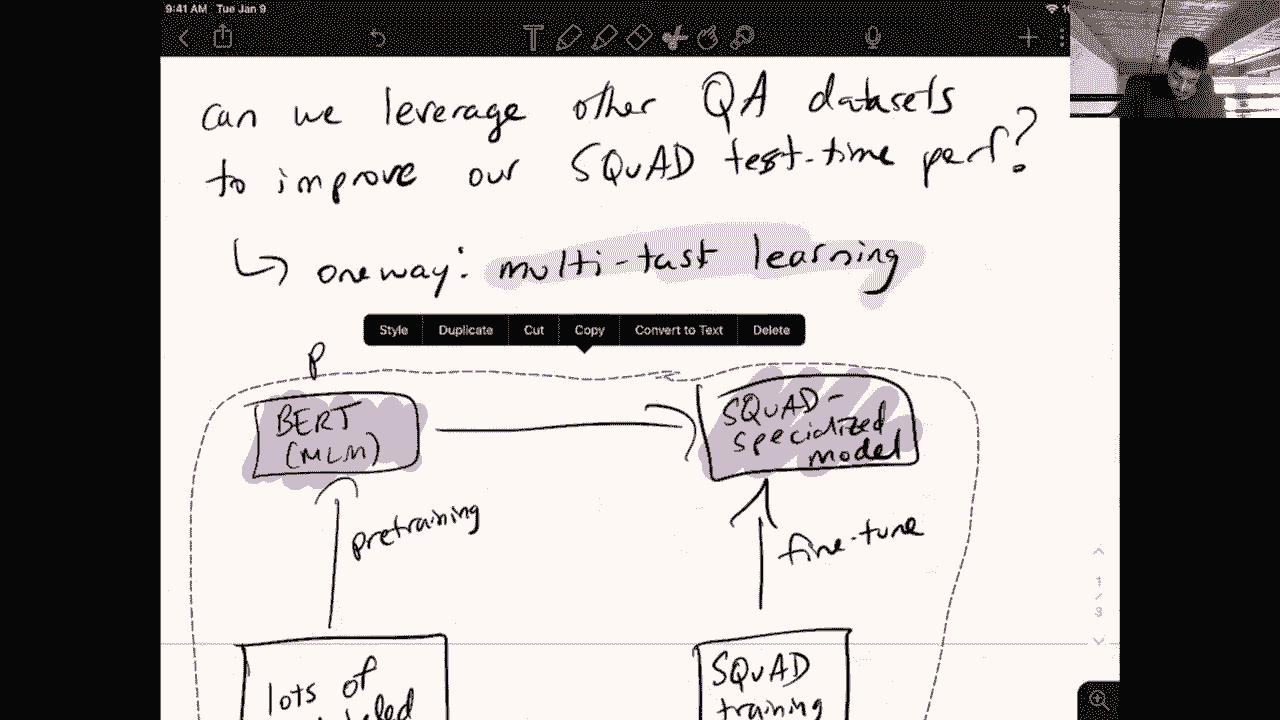 9:41 AM Tue Jan 9
can we leverage other QA datasets
to improve our SQuAD test-time perf?
one way: multi-tast learning
Style Duplicate Cut Copy Convert to Text Delete
P
BERT
(MLM)
SQuAD-
specialized
model
pretraining
fine-tune
1
/
3
lots of
SQuAD
training